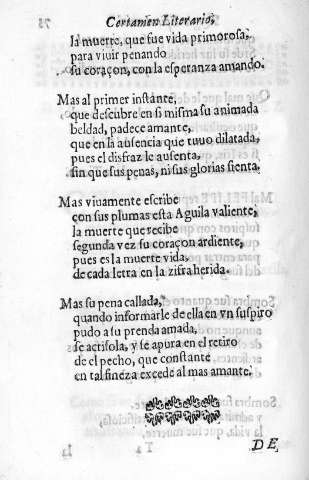 Certamen Literario,
la muerte, que fue vida primorosa,
para viuir penando
su coraçon, con la esperanza amando.
Mas al primer instante,
que descubre en si misma su animada
beldad, padece amante,
que en la ausencia que tuuo dilatada,
pues el disfraz le ausenta,
sin que sus penas, ni sus glorias sienta.
Mas viuamente escribe
con sus plumas esta Aguila valiente,
la muerte que recibe
segunda vez su coraçon ardiente,
pues es la muerte vida,
de cada letra en la zifra herida.
Mas su pena callada,
quando informarle de ella en vn suspiro
pudo a su prenda amada,
se acrisola, y se apura en el retiro
de el pecho, que constante
en tal fineza excede al mas amante.
DE